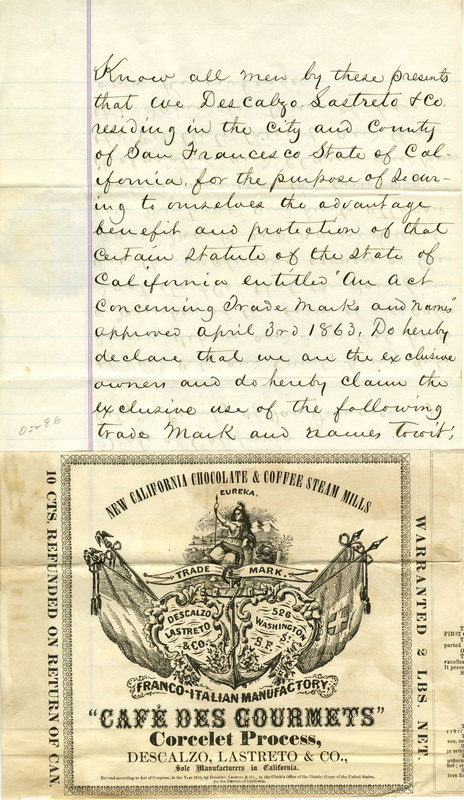 Know all men by these presents
that we Descalzo Lastreto & Co.
residing in the city and County
of San Francesco State of Cal-
ifornia, for the purpose of secur-
ing to ourselves the advantage
benefit and protection of that
certain statute of the State of
California entitled "An Act
concerning Trade Marks and Names"
approved April 3rd 1863, Do hereby
declare that we are the exclusive
owners and do hereby claim the
exclusive use of the following
trade Mark and names towit;
NEW CALIFORNIA CHOCOLATE & COFFEE STEAM MILLS
EUREKA.
TRADE MARK.
DESCALZO
LASTRETO
& Co.
526
WASHINGTON
St
S.F.
FRANCO-ITALIAN MANUFACTORY
"CAFÉ DES GOURMETS"
Corcelet Process,
DESCALZO, LASTRETO & CO.,
Sole Manufacturers in California.
Entered according to Act of Congress, in the Year 1870, by Descalzo, Lastreto & Co., in the Clerk's Office of the District Court of the United States,
for the District of California.
10 CTS. REFUNDED ON RETURN OF CAN.
WARRANTED 2 LBS. NET.